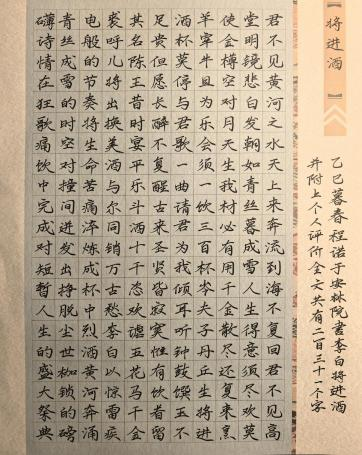 【将进酒】
乙巳暮春程诺于安林院书李白将进酒
并附上个人评价全文共有二百三十一个字
君不见黄河之水天上来奔流到海不复回君不见高
堂明镜悲白发朝如青丝暮成雪人生得意须尽欢莫
使金樽空对月天生我材必有用千金散尽还复来烹
羊宰牛且为乐会须一饮三百杯岑夫子丹丘生将进
酒杯莫停与君歌一曲请君为我倾耳听钟鼓馔玉不
足贵但愿长醉不复醒古来圣贤皆寂寞惟有饮者留
其名陈王昔时宴平乐斗酒十千恣欢谑五花马千金
裘呼儿将出换美酒与尔同销万古愁李白以惊雷疾
电般的节奏将生命苦痛淬炼成杯中烈酒黄河奔涌
青丝成雪的时空对撞间迸发出挣脱尘世枷锁的磅
礴诗情在狂歌痛饮中完成对短暂人生的盛大祭典